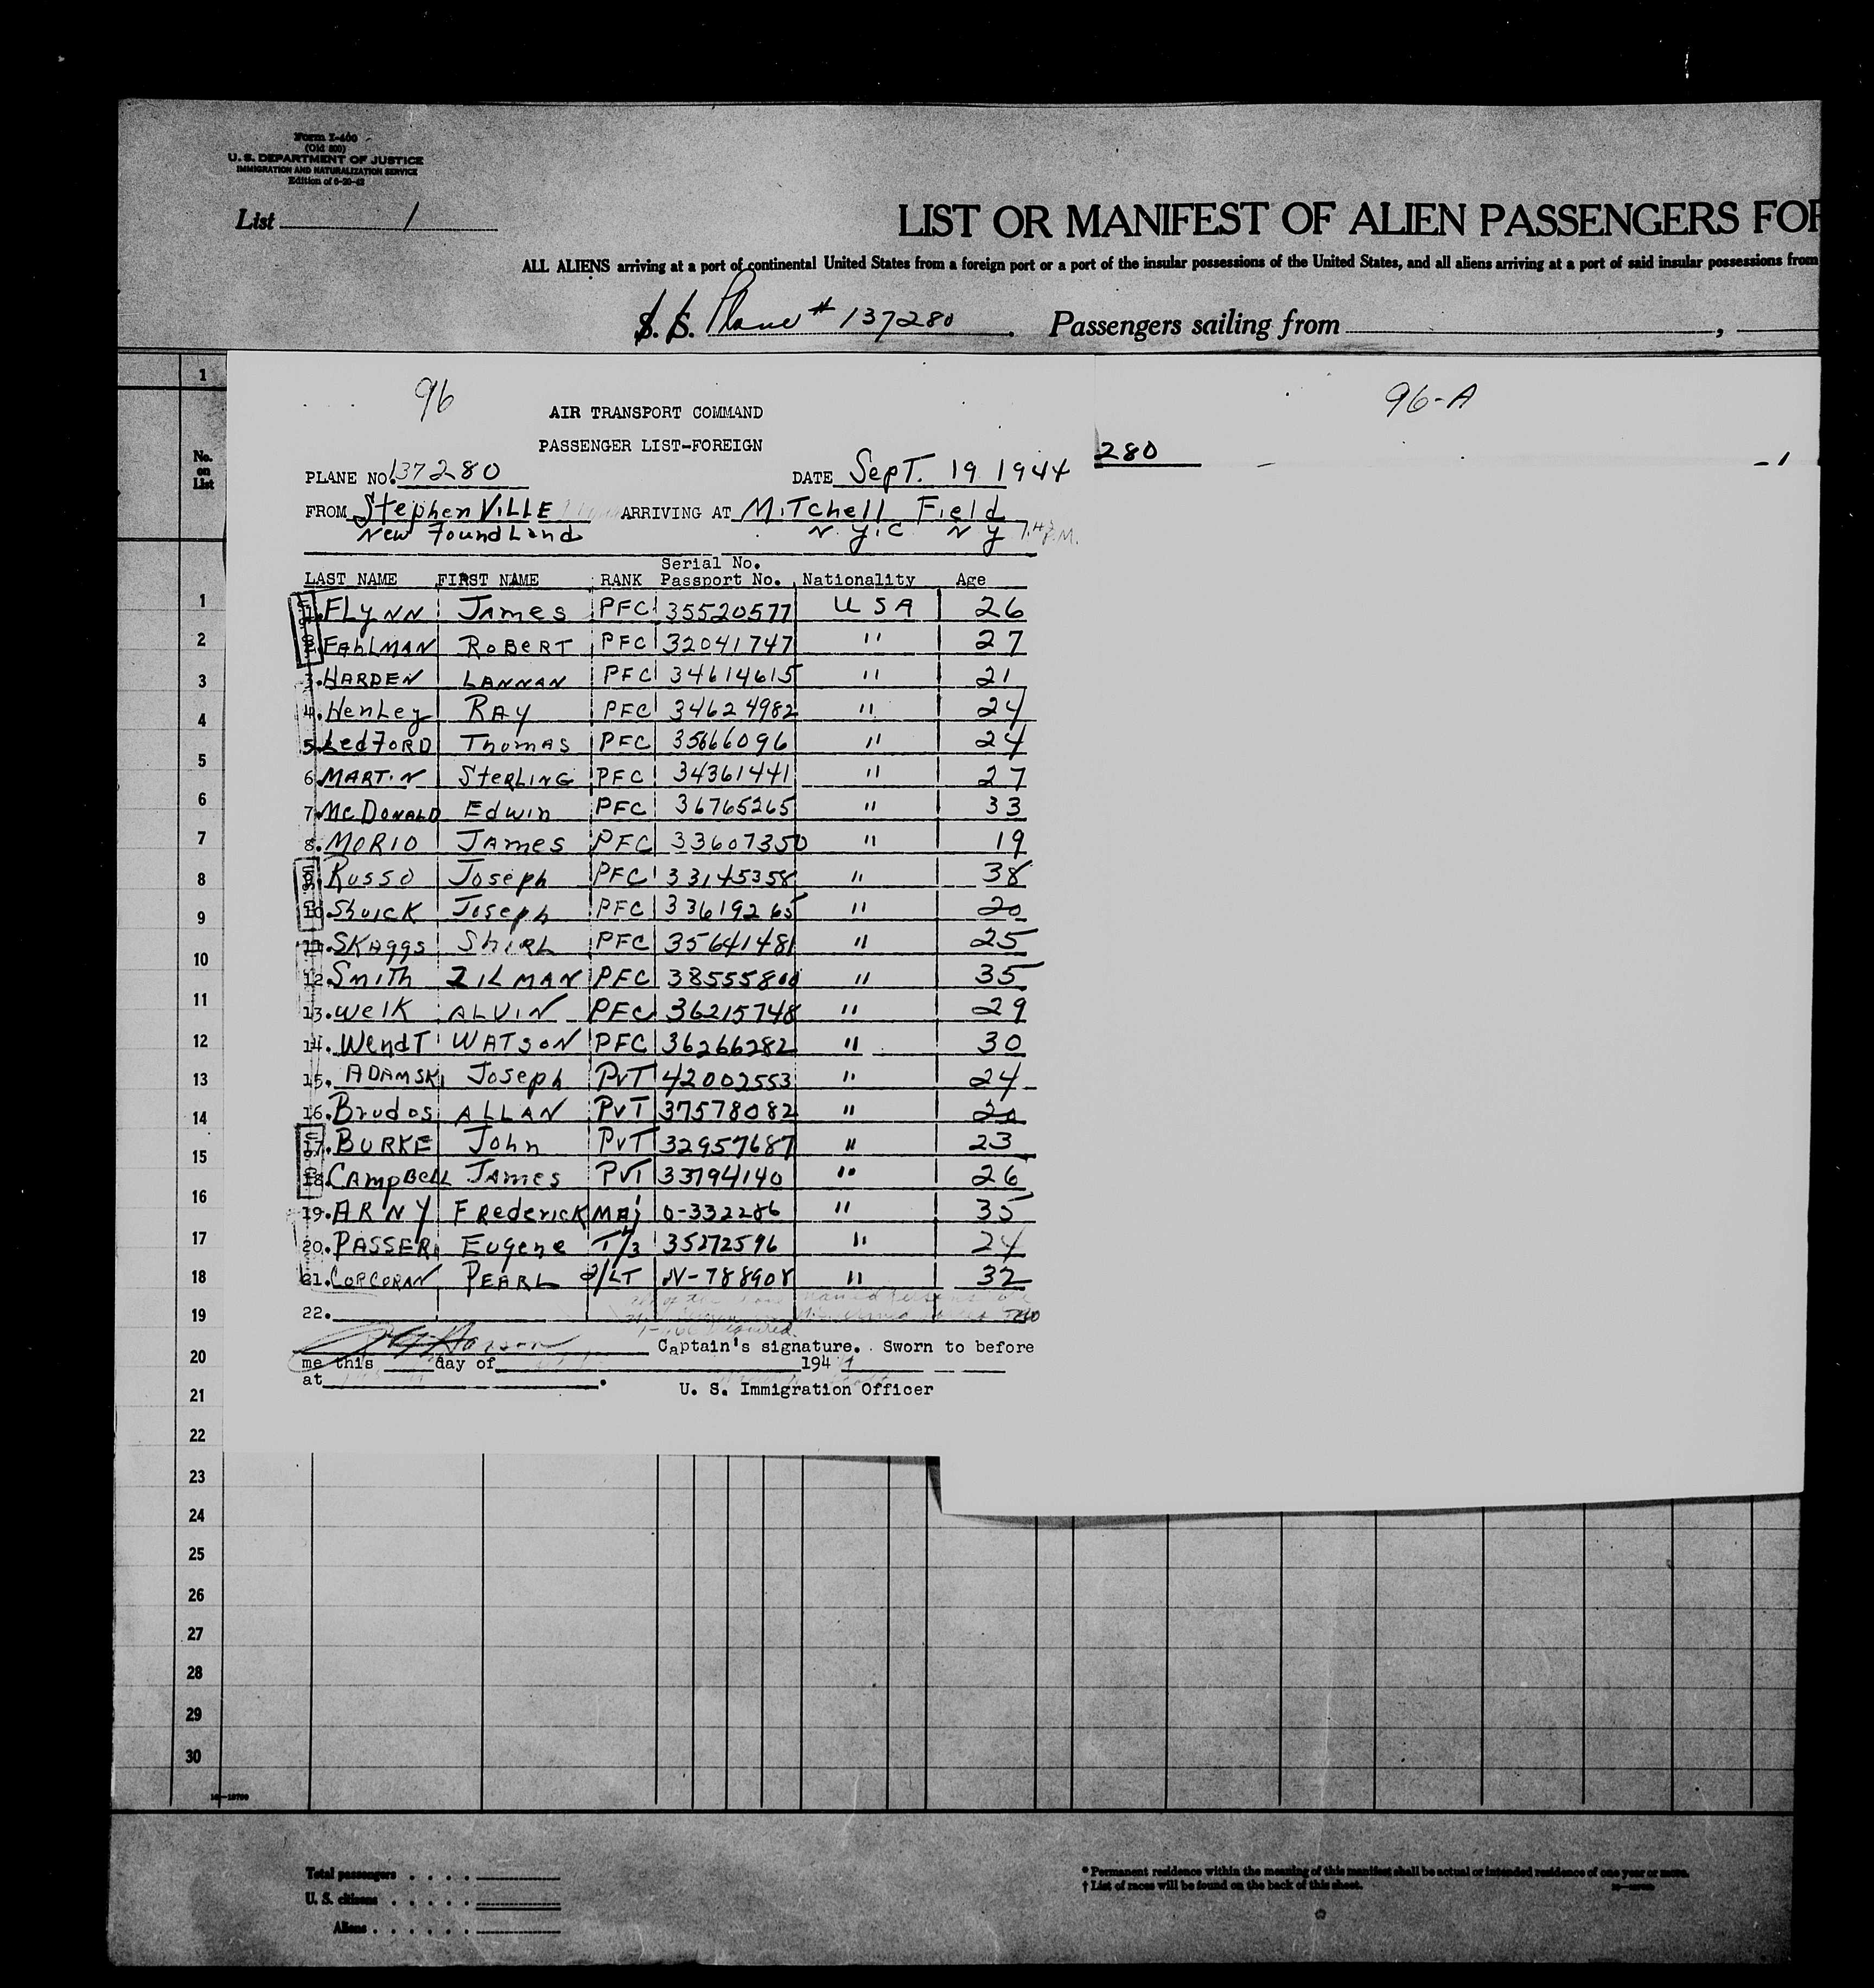 Form I-400
(Old 500)
U. S. DEPARTMENT OF JUSTICE
IMMIGRATION AND NATURALIZATION SERVICE
Edition of 6-20-43
List 1
LIST OR MANIFEST OF ALIEN PASSENGERS FOR
ALL ALIENS arriving at a port of continental United States from a foreign port or a port of the insular possessions of the United States, and all aliens arriving at a port of said insular possessions from
S. S. Plane # 137280 . Passengers sailing from ,
1
No. on List
96
96-A
AIR TRANSPORT COMMAND
PASSENGER LIST-FOREIGN
280 - 1
PLANE NO. 137280 DATE SepT. 19 1944
FROM Stephen ViLLE ARRIVING AT MiTchell Field
New FoundLand N.Y.C NY P.M.
Serial No.
LAST NAME FIRST NAME RANK Passport No. Nationality Age
1. FLyNN JAmes PFC 35520577 USA 26
2. FAhLMAN RoBeRT PFC 32041747 " 27
3. HARDEN LANNAN PFC 34614615 " 21
4. HenLey RAy PFC 34624982 " 24
5. LedFORD ThomAS PFC 35666096 " 24
6. MARTiN SteRLiNG PFC 34361441 " 27
7. McDoNALD Edwin PFC 36765265 " 33
8. MORIO JAmes PFC 33607350 " 19
9. Russo Joseph PFC 33145358 " 38
10. Shuck Joseph PFC 33619265 " 20
11. SKAggs ShiRL PFC 35641481 " 25
12. SmiTh ZILMAN PFC 38555800 " 35
13. welK ALVIN PFC 36215748 " 29
14. WendT WATSON PFC 36266282 " 30
15. ADAMSKi Joseph PvT 42002553 " 24
16. Brudos ALLAN PvT 37578082 " 20
17. BURKE John PvT 32957687 " 23
18. CAmpBeLL JAmes PVT 33794140 " 26
19. ARNY FRederick MAj O-332286 " 35
20. PASSERi Eugene T/3 35272596 " 24
21. CORCORAN PEARL 2/LT N-788908 " 32
22.
Captain's signature. Sworn to before
me this day of 1944
at .
U. S. Immigration Officer
1
2
3
4
5
6
7
8
9
10
11
12
13
14
15
16
17
18
19
20
21
22
23
24
25
26
27
28
29
30
Total passengers . . . .
U. S. citizens . . . . .
Aliens . . . . . .
* Permanent residence within the meaning of this manifest shall be actual or intended residence of one year or more.
† List of races will be found on the back of this sheet.